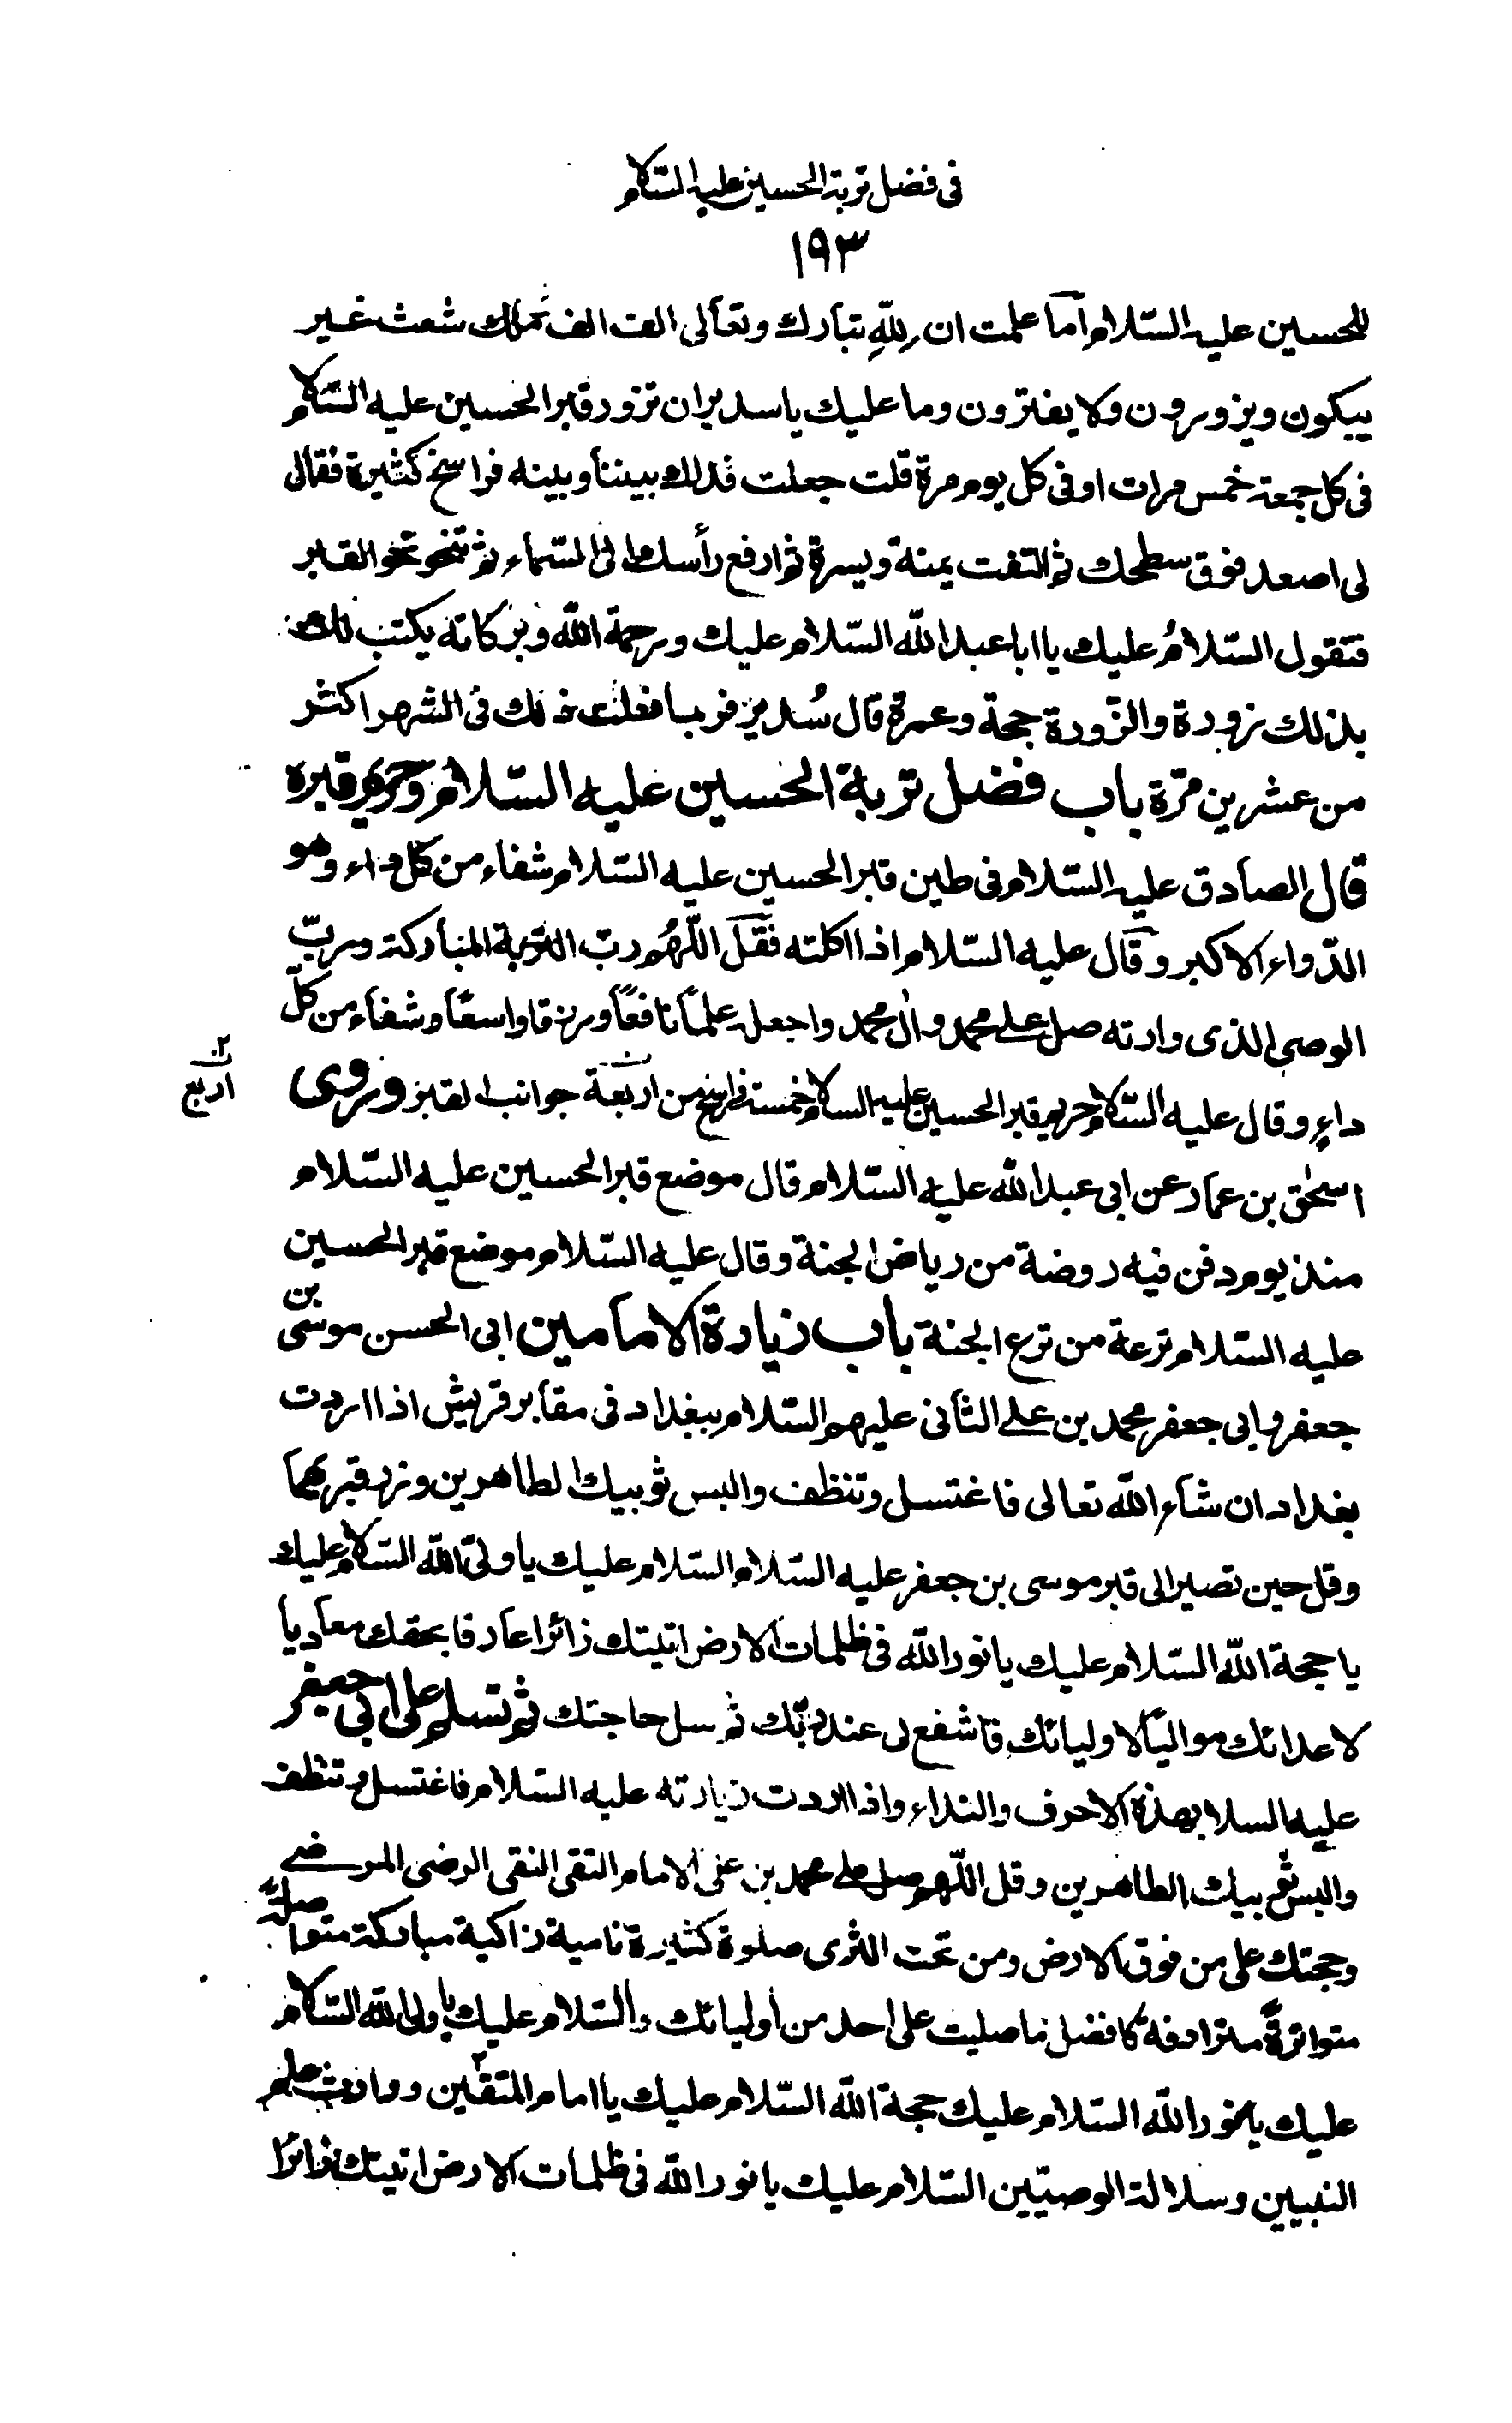 فى فضل تربة الحسين عليه السّلام
١٩٣
للحسين عليه السّلام اما علمت ان لِلّهِ تبارك وتعالى الف الف ملك شعث غبر
يبكون ويزورون ولا يفترون وما عليك يا سدير ان تزور قبر الحسين عليه السّلام
فى كل جمعة خمس مرات او فى كل يوم مرة قلت جعلت فداك بيننا وبينه فراسخ كثيرة فقال
لى اصعد فوق سطحك ثم التفت يمنة ويسرة ثم ارفع رأسك الى السّماء ثم تنحو نحو القبر
فتقول السّلامُ عليك يا ابا عبد الله السّلام عليك ورحمة الله وبركاته يكتب لك
بذلك زورة والزّورة حجة وعمرة قال سُدير فربما فعلت ذلك فى الشهر اكثر
من عشرين مرّة باب فضل تربة الحسين عليه السّلام وحريم قبره
قال الصادق عليه السّلام فى طين قبر الحسين عليه السّلام شفاء من كل داء وهو
الدّواء الاكبر وقال عليه السّلام اذا اكلته فقل اللّهُم ربّ التربة المباركة وربّ
الوصى الذى وارته صل على محمد وال محمد واجعله علماً نافعًا ورزقا واسعًا وشفاء من كلّ
داءٍ وقال عليه السّلام حريم قبر الحسين عليه السلام خمسة فراسخ من اربعة جوانب القبر وروى
اربع
اسحٰق بن عمار عن ابى عبد الله عليه السّلام قال موضع قبر الحسين عليه السّلام
منذ يوم دفن فيه روضة من رياض الجنة وقال عليه السّلام موضع قبر الحسين
عليه السّلام ترعة من ترع الجنة باب زيارة الامامين ابى الحسن موسى بن
جعفر وابى جعفر محمد بن على الثانى عليهم السّلام ببغداد فى مقابر قريش اذا اردت
بغداد ان شاء الله تعالى فاغتسل وتنظف والبس ثوبيك الطاهرين وزر قبريهما
وقل حين تصير الى قبر موسى بن جعفر عليه السّلام السّلام عليك يا ولىّ الله السّلام عليك
يا حجة الله السّلام عليك يا نور الله فى ظلمات الارض اتيتك زائرا عارفا بحقك معاديا
لاعدائك مواليًا لاوليائك فاشفع لى عند ربّك ثم سل حاجتك ثم تسلم على ابى جعفر
عليه السلام بهذه الاحرف والنداء واذا اردت زيارته عليه السّلام فاغتسل وتنظف
والبس ثوبيك الطاهرين وقل اللّهم صل على محمد بن على الامام التقى النقى الرضى المرضى
وحجتك على من فوق الارض ومن تحت الثرى صلوة كثيرة نامية زاكية مباركة متواصلة
متواترةً مترادفة كافضل ما صليت على احد من اوليائك والسّلام عليك يا ولى الله السّلام
عليك يا نور الله السّلام عليك حجة الله السّلام عليك يا امام المتقين ووارث علم
النبيين وسلالة الوصيّين السّلام عليك يا نور الله فى ظلمات الارض اتيتك زائرًا